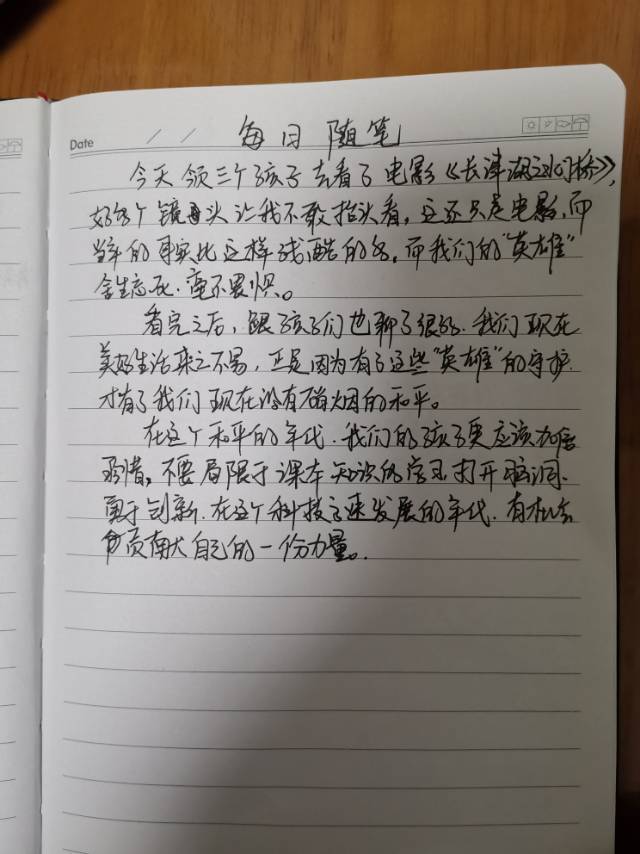 Date / / 每日随笔
今天领三个孩子去看了电影《长津湖之水门桥》,
好多个镜头让我不敢抬头看,这还只是电影,而
当年的事实比这样残酷的多,而我们的“英雄”
舍生忘死.毫不畏惧。
看完之后,跟孩子们也聊了很多.我们现在
美好生活来之不易,正是因为有了这些“英雄”的守护.
才有了我们现在没有硝烟的和平。
在这个和平的年代.我们的孩子更应该加倍
珍惜,不要局限于课本知识的学习.打开脑洞.
勇于创新.在这个科技高速发展的年代.有机会
贡献自己的一份力量。